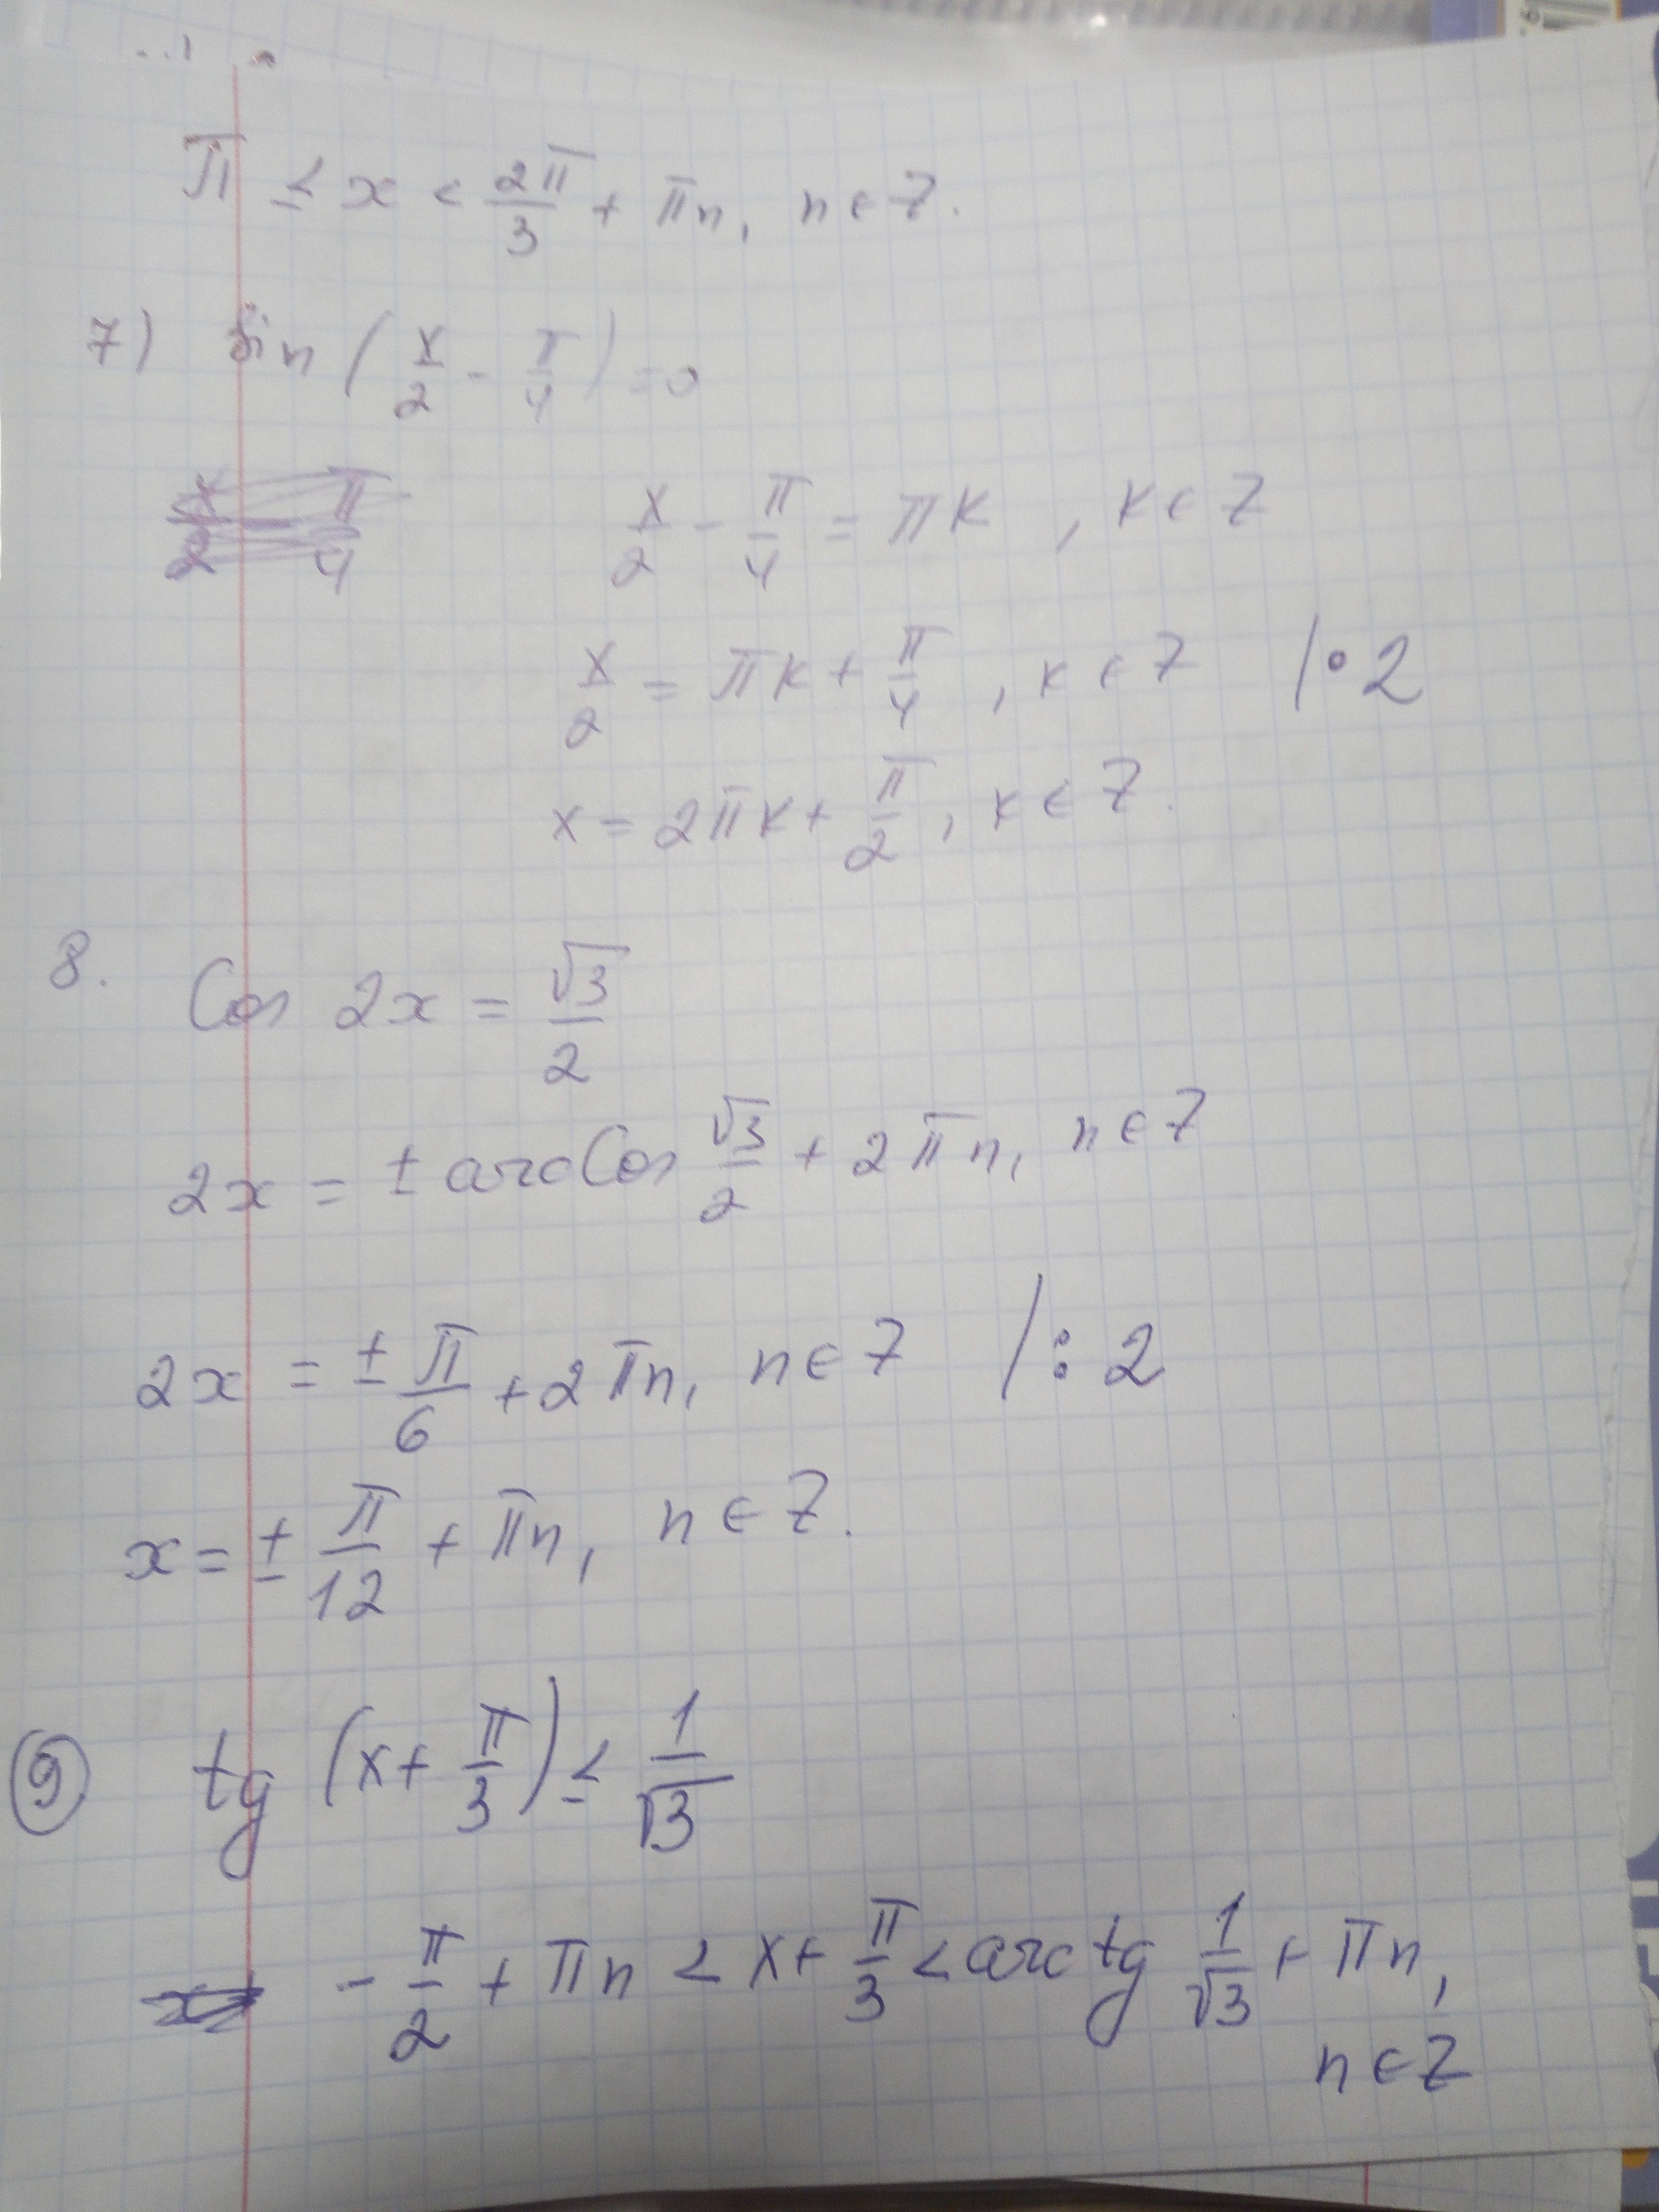 π ≤ x < 2π/3 + πn, n ∈ Z.
7) sin (x/2 - π/4) = 0
x/2 - π/4 = πk, k ∈ Z
x/2 = πk + π/4, k ∈ Z |• 2
x = 2πk + π/2, k ∈ Z.
8. Cos 2x = √3/2
2x = ± arcCos √3/2 + 2πn, n ∈ Z
2x = ± π/6 + 2πn, n ∈ Z |: 2
x = ± π/12 + πn, n ∈ Z.
9) tg (x + π/3) ≤ 1/√3
- π/2 + πn < x + π/3 < arctg 1/√3 + πn,
n ∈ Z